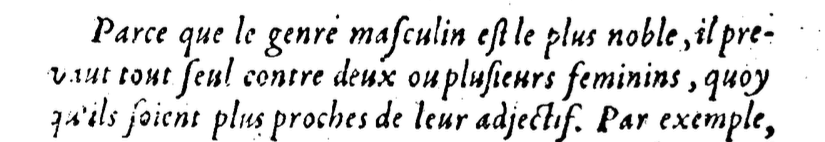 Parce que le genre maſculin eſt le plus noble, il pre-
vaut tout ſeul contre deux ou pluſieurs feminins, quoy
qu'ils ſoient plus proches de leur adjectif. Par exemple,